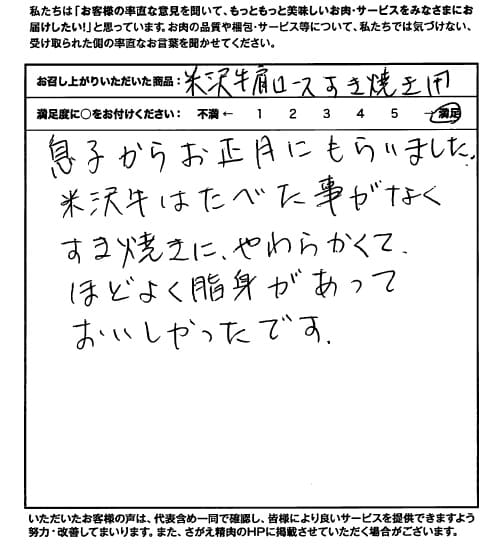 私たちは「お客様の率直な意見を聞いて、もっともっと美味しいお肉・サービスをみなさまにお
届けしたい!」と思っています。お肉の品質や梱包・サービス等について、私たちでは気づけない、
受け取られた側の率直なお言葉を聞かせてください。
お召し上がりいただいた商品：米沢牛肩ロースすき焼き用
満足度に○をお付けください： 不満 ← 1 2 3 4 5 → 満足
息子からお正月にもらいました。
米沢牛はたべた事がなく
すき焼きに、やわらかくて、
ほどよく脂身があって
おいしかったです。
いただいたお客様の声は、代表含め一同で確認し、皆様により良いサービスを提供できますよう
努力・改善してまいります。また、さがえ精肉のHPに掲載させていただく場合がございます。